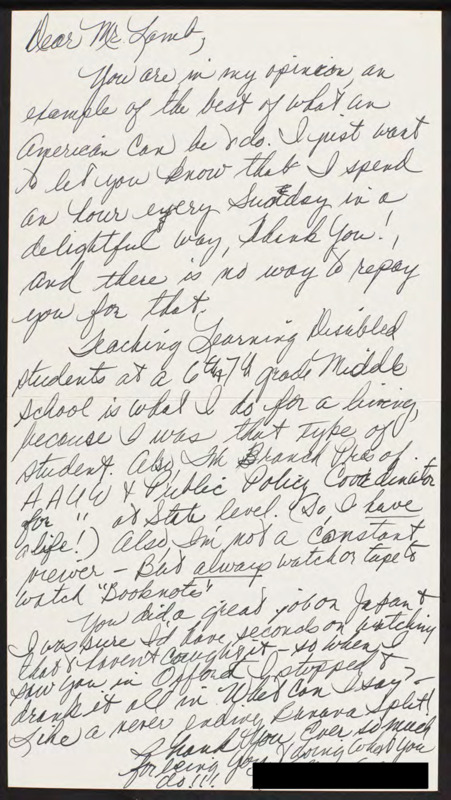 Dear Mr. Lamb,
You are in my opinion an
example of the best of what an
American can be & do. I just want
to let you know that I spend
an hour every Sunday in a
delightful way, Thank You!,
and there is no way to repay
you for that.
Teaching Learning Disabled
students at a 6th & 7th grade Middle
School is what I do for a living,
because I was that type of
student. Also, I'm Branch Pres of
AAUW & Public Policy Coordinator
for " at State level. (So, I have
a life!) Also I'm not a constant
viewer - But always watch or tape to
watch "Booknotes"
You did a great job on Japan &
I was sure I'd have seconds on watching
that & haven't caught it - so when I
saw you in I stopped &
drank it all in. What can I say? -
Like a never ending Banana Split!
Thank You Ever so much
for being you & doing what you
do!!!